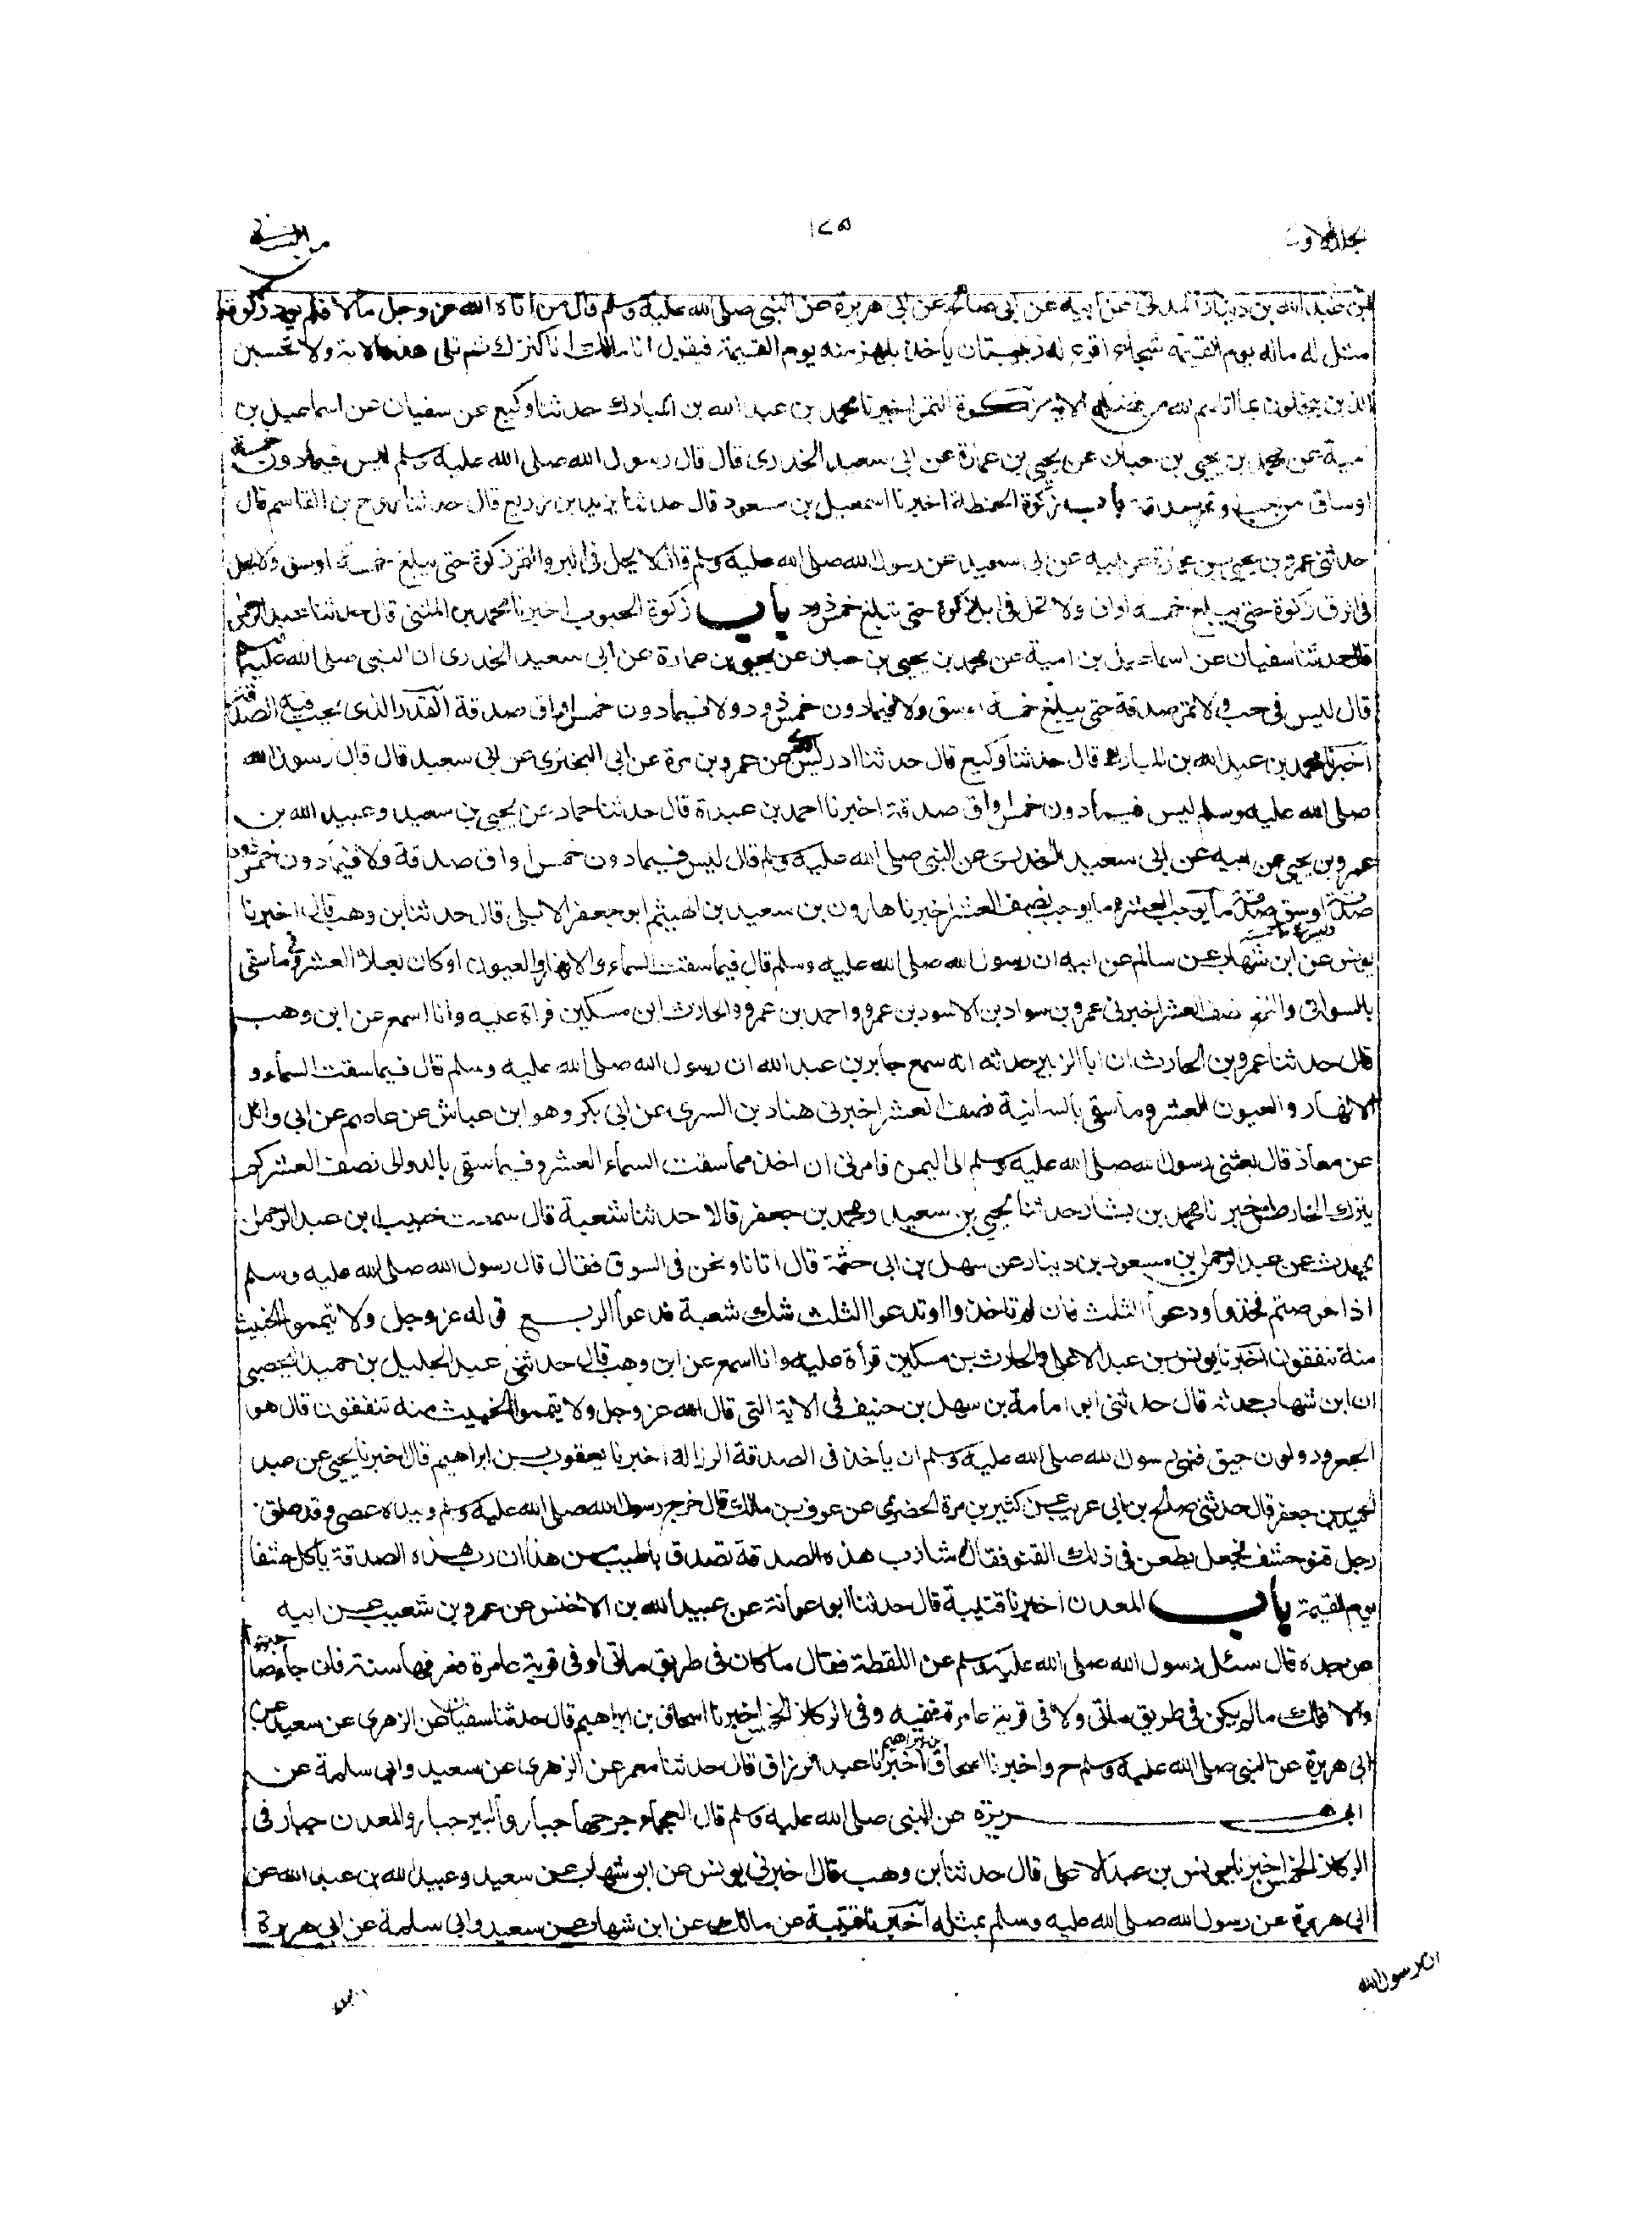 المجلد الاول
١٢٥
من النسائی
بن عبد الله بن دينار المدنی عن ابيه عن ابی صالح عن ابی هريرة عن النبی صلى الله عليه وسلم قال من اتاه الله عز وجل مالا فلم يود زكوته
مثل له ماله يوم القيمة شجاعا اقرع له زبيبتان ياخذ بلهزمته يوم القيمة فيقول انا مالك انا كنزك ثم تلى هذه الاية ولا تحسبن
الذين يبخلون بما اتاهم الله من فضله الاية زكوة التمر اخبرنا محمد بن عبد الله بن المبارك حدثنا وكيع عن سفيان عن اسماعيل بن
امية عن محمد بن يحيى بن حبان عن يحيى بن عمارة عن ابی سعيد الخدری قال قال رسول الله صلى الله عليه وسلم ليس فيما دون خمسة
اوساق من حب وتمر صدقة باب زكوة الحنطة اخبرنا اسمعيل بن مسعود قال حدثنا يزيد بن زريع قال حدثنا روح بن القاسم قال
حدثنی عمرو بن يحيى بن عمارة عن ابيه عن ابی سعيد عن رسول الله صلى الله عليه وسلم قال لا يحل فی البر والتمر زكوة حتى يبلغ خمسة اوسق ولا يحل
فی الورق زكوة حتى يبلغ خمسة اواق ولا تحل فی ابل زكوة حتى تبلغ خمس ذود باب زكوة الحبوب اخبرنا محمد بن المثنى قال حدثنا عبد الرحمن
قال حدثنا سفيان عن اسماعيل بن امية عن محمد بن يحيى بن حبان عن يحيى بن عمارة عن ابی سعيد الخدری ان النبی صلى الله عليه وسلم
قال ليس فی حب ولا تمر صدقة حتى يبلغ خمسة اوسق ولا فيما دون خمس ذود ولا فيما دون خمس اواق صدقة القدر الذی يجب فيه الصدقة
اخبرنا محمد بن عبد الله بن المبارك قال حدثنا وكيع قال حدثنا ادريس الاودی عن عمرو بن مرة عن ابی البختری عن ابی سعيد قال قال رسول الله
صلى الله عليه وسلم ليس فيما دون خمس اواق صدقة اخبرنا احمد بن عبدة قال حدثنا حماد عن يحيى بن سعيد وعبيد الله بن
عمرو بن يحيى عن ابيه عن ابی سعيد الخدری عن النبی صلى الله عليه وسلم قال ليس فيما دون خمس اواق صدقة ولا فيما دون خمس ذود
صدقة وليس فيما دون خمسة اوسق صدقة ما يوجب العشر وما يوجب نصف العشر اخبرنا هارون بن سعيد بن الهيثم ابو جعفر الايلی قال حدثنا ابن وهب قال اخبرنا
يونس عن ابن شهاب عن سالم عن ابيه ان رسول الله صلى الله عليه وسلم قال فيما سقت السماء والانهار والعيون او كان بعلا العشر وفی ما سقی
بالسوانی والنضح نصف العشر اخبرنی عمرو بن سواد بن الاسود بن عمرو واحمد بن عمرو والحارث ابن مسكين قراة عليه وانا اسمع عن ابن وهب
قال حدثنا عمرو بن الحارث ان ابا الزبير حدثه انه سمع جابر بن عبد الله ان رسول الله صلى الله عليه وسلم قال فيما سقت السماء و
الانهار والعيون العشر وما سقی بالسانية نصف العشر اخبرنی هناد بن السری عن ابی بكر وهو ابن عياش عن عاصم عن ابی وائل
عن معاذ قال بعثنی رسول الله صلى الله عليه وسلم الى اليمن فامرنی ان اخذ مما سقت السماء العشر وفيما سقی بالدوالی نصف العشر كم
يترك الخارص اخبرنا محمد بن بشار حدثنا يحيى بن سعيد ومحمد بن جعفر قالا حدثنا شعبة قال سمعت خبيب بن عبد الرحمن
يحدث عن عبد الرحمن بن مسعود بن دينار عن سهل بن ابی حثمة قال اتانا ونحن فی السوق فقال قال رسول الله صلى الله عليه وسلم
اذا خرصتم فخذوا ودعوا الثلث فان لم تاخذوا او تدعوا الثلث شك شعبة فدعوا الربع قوله عز وجل ولا تيمموا الخبيث
منه تنفقون اخبرنا يونس بن عبد الاعلى والحارث بن مسكين قرأة عليه وانا اسمع عن ابن وهب قال حدثنی عبد الجليل بن حميد اليحصبی
ان ابن شهاب حدثه قال حدثنی ابو امامة بن سهل بن حنيف فی الاية التی قال الله عز وجل ولا تيمموا الخبيث منه تنفقون قال هو
الجعرود ولون حبيق فنهى رسول الله صلى الله عليه وسلم ان ياخذ فی الصدقة الرزالة اخبرنا يعقوب بن ابراهيم قال اخبرنا يحيى عن عبد
الحميد بن جعفر قال حدثنی صالح بن ابی عريب عن كثير بن مرة الحضرمی عن عوف بن مالك قال خرج رسول الله صلى الله عليه وسلم وبيده عصى وقد علق
رجل قنو حشف فجعل يطعن فی ذلك القنو فقال لو شاء رب هذه الصدقة تصدق باطيب من هذا ان رب هذه الصدقة ياكل حشفا
يوم القيمة باب المعدن اخبرنا قتيبة قال حدثنا ابو عوانة عن عبيد الله بن الاخنس عن عمرو بن شعيب عن ابيه
عن جده قال سئل رسول الله صلى الله عليه وسلم عن اللقطة فقال ما كان فی طريق ماتی او فی قرية عامرة فعرفها سنة فان جاء صاحبها
والا فلك مالم يكن فی طريق ماتی ولا فی قرية عامرة ففيه وفی الركاز الخمس اخبرنا اسحاق بن ابراهيم قال حدثنا سفيان عن الزهری عن سعيد عن
ابی هريرة عن النبی صلى الله عليه وسلم ح واخبرنا اسحاق بن ابراهيم اخبرنا عبد الرزاق قال حدثنا معمر عن الزهری عن سعيد وابی سلمة عن
ابی هريرة عن النبی صلى الله عليه وسلم قال العجماء جرحها جبار والبير جبار والمعدن جبار وفی
الركاز الخمس اخبرنا يونس بن عبد الاعلى قال حدثنا ابن وهب قال اخبرنی يونس عن ابن شهاب عن سعيد وعبيد الله بن عبد الله عن
ابی هريرة عن رسول الله صلى الله عليه وسلم بمثله اخبرنا قتيبة عن مالك عن ابن شهاب عن سعيد وابی سلمة عن ابی هريرة
ان رسول الله